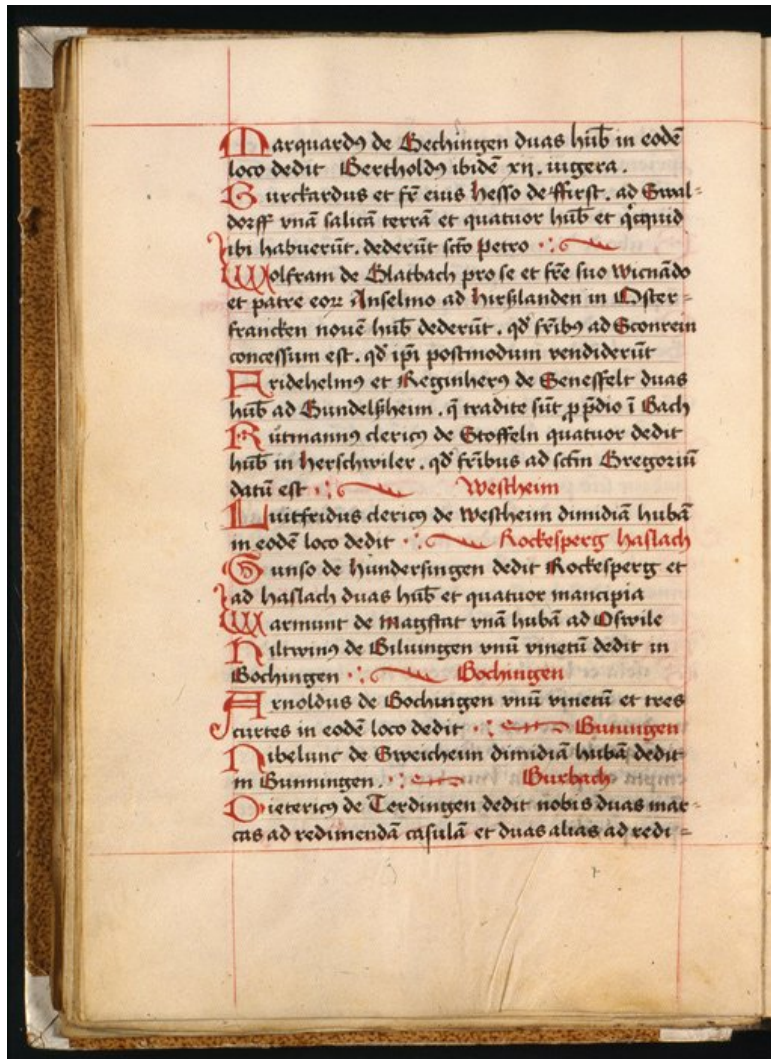 Marquardꝰ de Gechingen duas hūb in eodē
loco dedit Bertholdꝰ ibidē xij. iugera.
Burckardus et fr̄ eius hesso de ffirst. ad Gwal=
dorff vnā salicā terrā et quatuor hūb et qͥcquid
ibi habuerūt. dederūt sct̄o petro
Wolfram de Glatbach pro se et fr̄e suo wicnādo
et patre eoꝝ Anselmo ad hirßlanden in Oster=
francken nouē hūb dederūt. qd̄ fr̄ibꝰ ad Sconrein
concessum est. qd̄ ip̄i postmodum vendiderūt
Fridehelmꝰ et Reginherꝰ de Senesfelt duas
hūb ad Gundelßheim. q̄ tradite sūt ꝓ p̄dio ī Bach
Rūtmannꝰ clericꝰ de Stoffeln quatuor dedit
hūb in herschwiler. qd̄ fr̄ibus ad sct̄m Gregoriū
datū est westheim
Luitfridus clericꝰ de westheim dimidiā hubā
in eodē loco dedit Rockesperg haslach
Gunso de hundersingen dedit Rockesperg et
ad haslach duas hūb et quatuor mancipia
Warmunt de magstat vnā hubā ad Oswile
hiltwinꝰ de Giluingen vnū vinetū dedit in
Bochingen Bochingen
Arnoldus de Bochingen vnū vinetū et tres
curtes in eodē loco dedit Guningen
Nibelunc de Sweicheim dimidiā hubā dedit
in Gunningen. Burbach
Dietericꝰ de Terdingen dedit nobis duas mar=
cas ad redimendā casulā et duas alias ad redi=